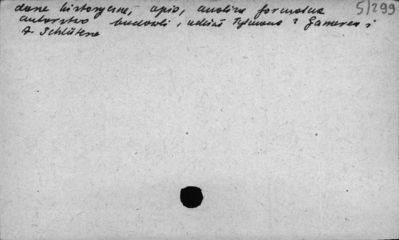 dane historyczne, opis, analiza formalna 5/299
autorstwo budowli, udział Tylmana z Gameren i
A. Schlütera